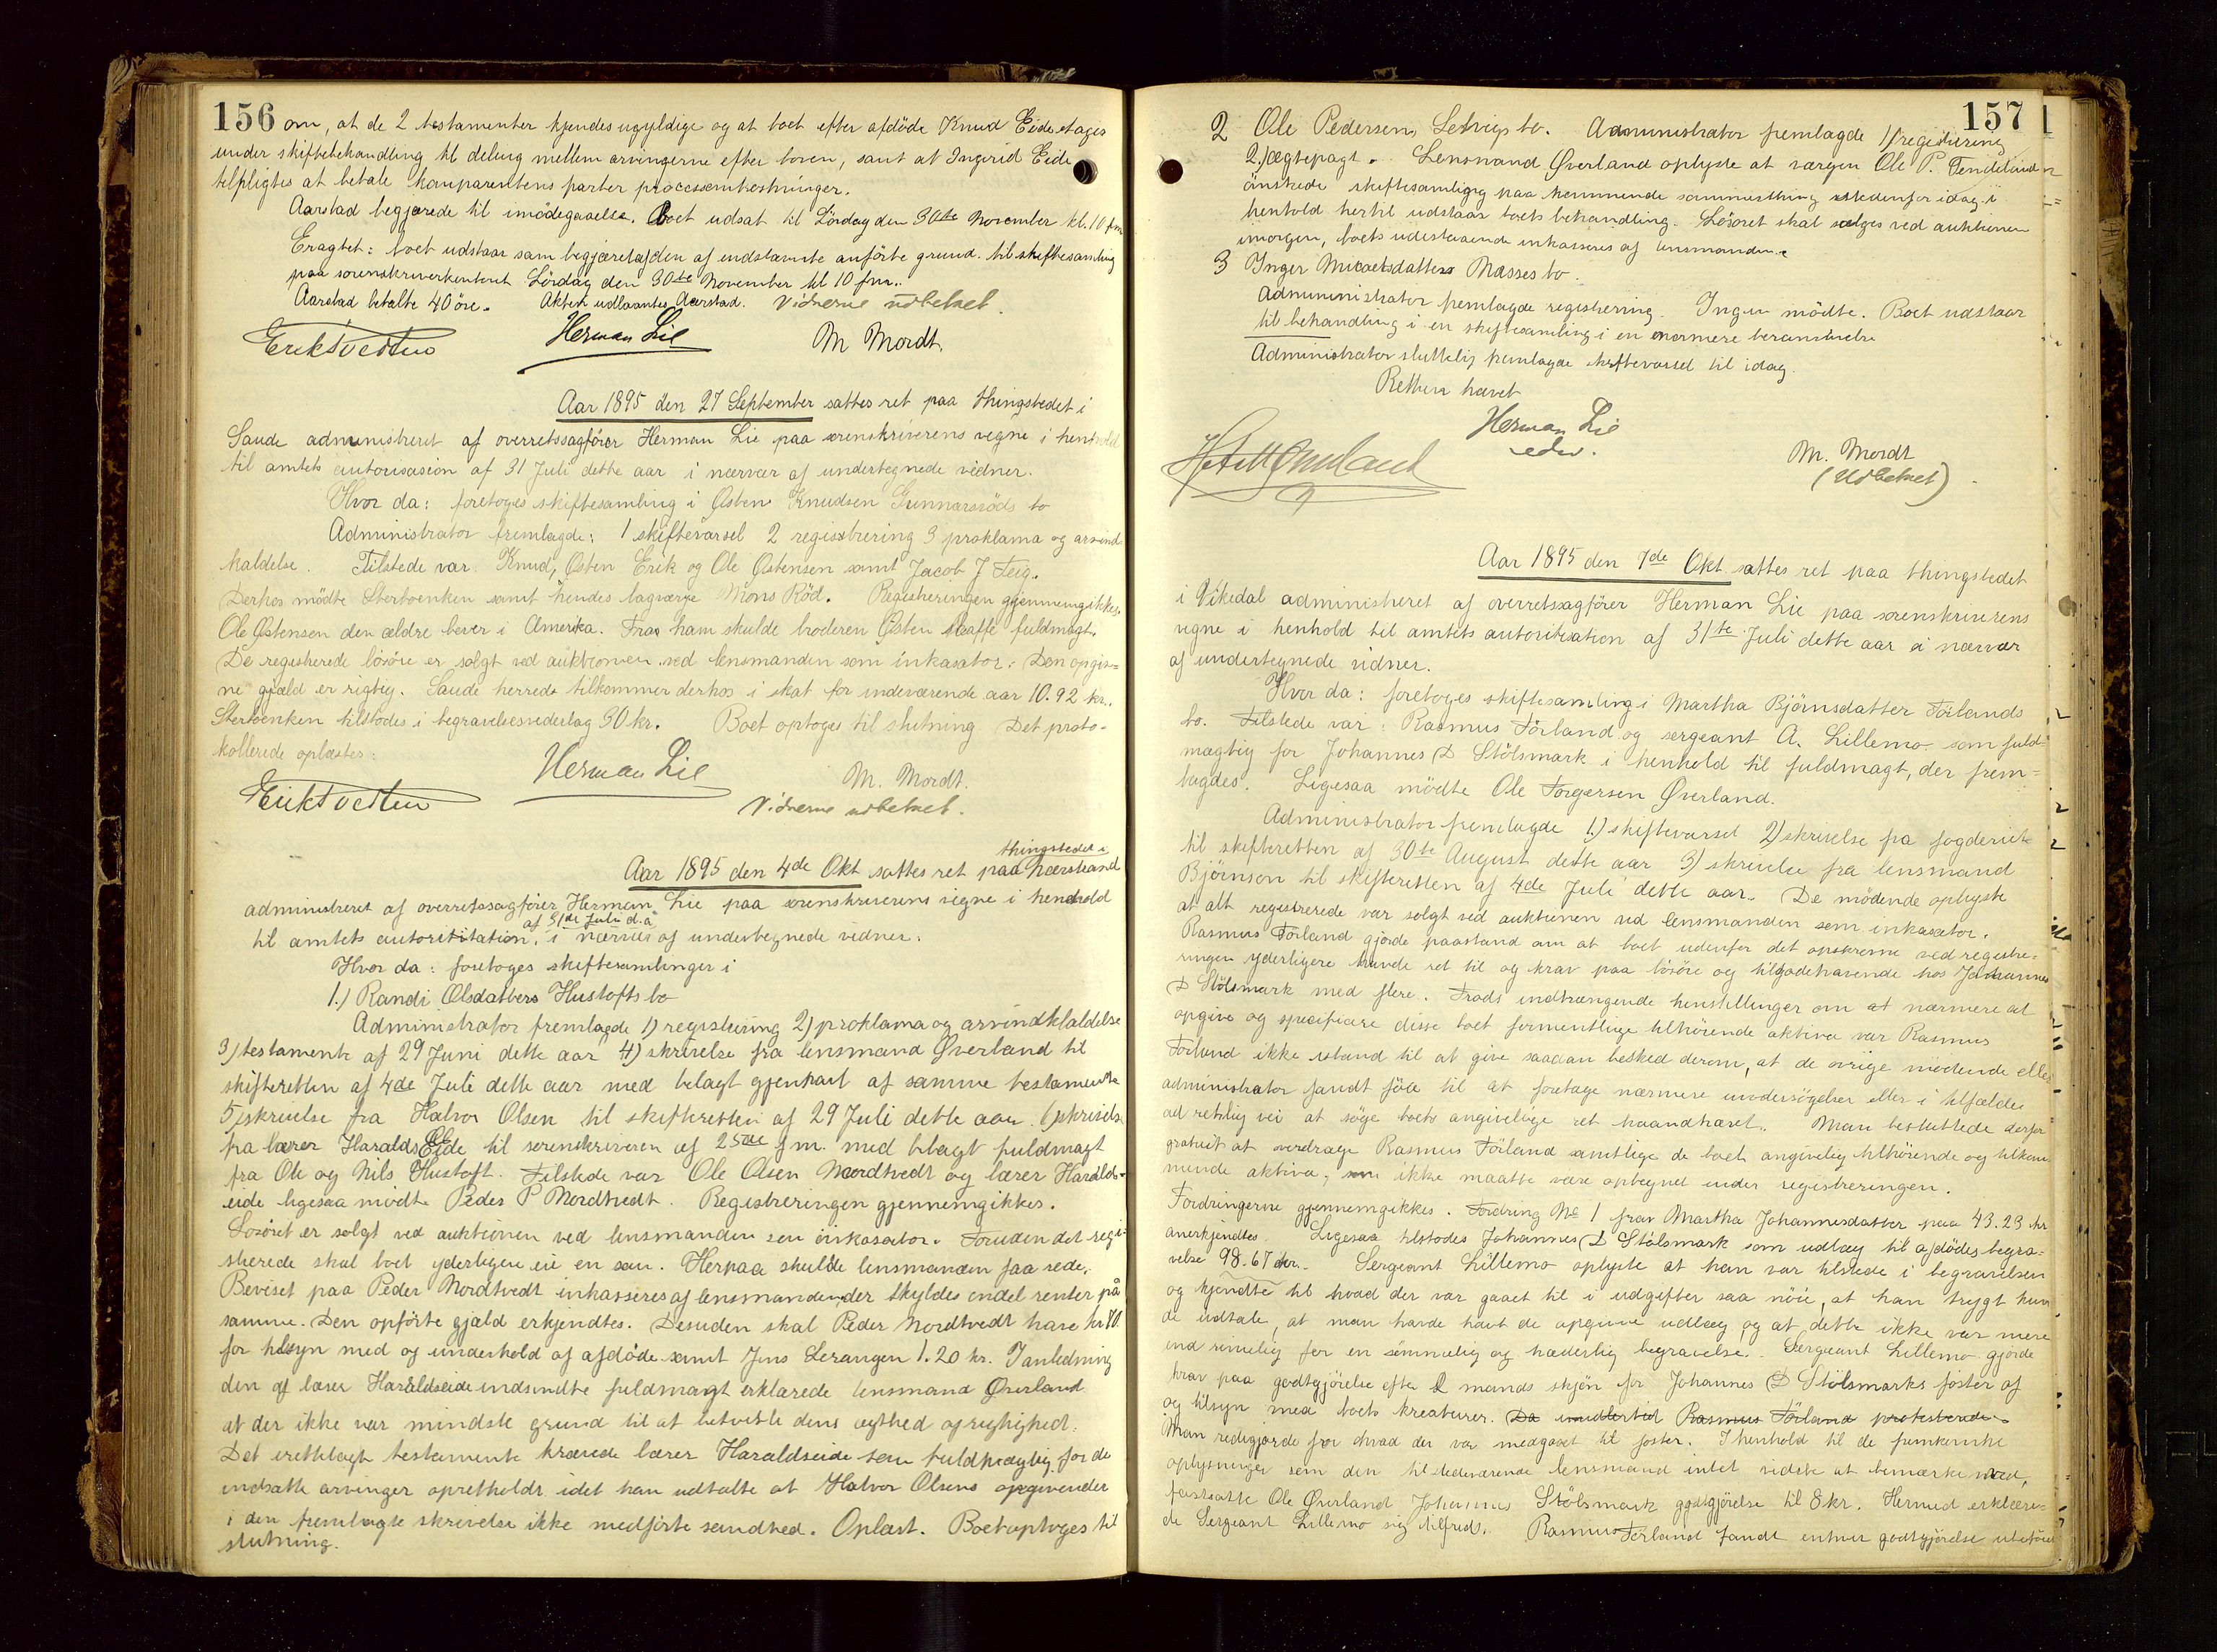 156 om, at de 2 testamenter kjendes ugyldige og at boet efter afdöde Knud Eide tages
under skiftebehandling til deling mellem arvingerne efter loven, samt at Ingerid Eide
tilpligtes at betale komparentens parter procesomkostninger.
Aarstad begjærede til imödegaaelse. Boet udsat til Lördag den 30te November kl. 10 fm
Eragtet: boet udstaar som begjæret af den af endstævnte anförte grund til skiftesamling
paa sorenskriverkontoret Lördag den 30te November kl 10 fm..
Aarstad betalte 40 öre. Akten udlaantes Aarstad. Vidnerne udbetalt.
Erik Tvedten Herman Lie M Mordt.
Aar 1895 den 27 September sattes ret paa thingstedet i
Saude administreret af overretssagförer Herman Lie paa sorenskriverens vegne i henhold
til amtets autorisasion af 31 Juli dette aar i nærvær af undertegnede vidner.
Hvor da: foretoges skiftesamling i Østen Knudsen Gunnarsröds bo
Administrator fremlagde: 1 skiftevarsel 2 registrering 3 proklama og arvind
kaldelse. Tilstede var Knud, Østen Erik og Ole Østensen samt Jacob J Teig.
Derhos mödte Sterboenken samt hendes lagværge Mons Röd. Registreringen gjennemgikkes.
Ole Østensen den ældre bever i Amerika. Fra ham skulde broderen Østen skaffe fuldmagt.
De registrerede lösöre er solgt ved auktionen ved lensmanden som inkasator. Den opgiv=
ne gjæld er rigtig. Saude herred tilkommer derhos i skat for indeværende aar 10.92 kr..
Sterboenken tilstodes i begravelsesvederlag 30 kr. Boet optoges til slutning Det proto-
kollerede oplæstes:
Erik Tvedten Herman Lie M. Mordt.
Vidnerne udbetalt.
thingstedet i
Aar 1895 den 4de Okt sattes ret paa Nærstrand
administreret af overretssagförer Herman Lie paa sorenskriverens vegne i henhold
af 31de Juli d.a
til amtets autoritation, i nærvær af undertegnede vidner.
Hvor da: foretoges skiftesamlinger i
1.) Randi Olsdatters Hustofts bo
Administrator fremlagde 1) registrering 2) proklama og arvindkaldelse
3) testamente af 29 Juni dette aar 4) skrivelse fra lensmand Øverland til
skifteretten af 4de Juli dette aar med belagt gjenpart af samme testamente
5) skrivelse fra Halvor Olsen til skifteretten af 29 Juli dette aar. 6) skrivelse
fra lærer Haraldseide til sorenskriveren af 25de f.m. med bilagt fuldmagt
fra Ole og Nils Hustoft. Tilstede var Ole Olsen Nordtvedt og lærer Haralds=
eide ligesaa mödte Peder P Nordtvedt. Registreringen gjennemgikkes.
Lösöret er solgt ved auktionen ved lensmanden som inkasator. Foruden det regi-
strerede skal boet yderligere eie en sau. Herpaa skulde lensmanden faa rede.
Beviset paa Peder Nordtvedt inkasseres af lensmanden, der skyldes endel renter på
samme. Den opförte gjæld erkjendtes. Desuden skal Peder Nordtvedt have kr 70
for tilsyn med og underhold af afdöde samt Jens Lerangen 1.20 kr. I anledning
den af lærer Haraldseide indsendte fuldmagt erklærede lensmand Øverland
at der ikke var mindste grund til at betvivle dens ægthed og rigtighed.
Det irettelagte testamente krævede lærer Haraldseide som fuldmægtig for de
indsatte arvinger opretholdt idet han udtalte at Halvor Olsens opgivender
i den fremlagte skrivelse ikke medförte sandhed. Oplæst. Boet optoges til
slutning.
157
2 Ole Pedersen, Letvigs bo. Administrator fremlagde 1) registrering
2.) ægtepagt. Lensmand Øverland oplyste at værgen Ole P. Tendeland
önskede skiftesamling paa kommende sommerthing istedenfor idag. i
henhold hertil udstaar boets behandling. Lösöret skal sælges ved auktionen
imorgen, boets udestaaende inkasseres af lensmanden.
3 Inger Micaelsdatters Masses bo.
Administrator fremlagde registrering. Ingen mödte. Boet udstaar
til behandling i en skiftesamling i en nærmere berammelse
Administrator sluttelig fremlagde skiftevarsel til idag.
Retten hævet
Herman Lie
edv.
M. Mordt
(Udbetalt)
Aar 1895 den 7de Okt. sattes ret paa thingstedet
i Vikedal administreret af overretssagförer Herman Lie paa sorenskriverens
vegne i henhold til amtets autoritisation af 31te Juli dette aar i nærvær
af undertegnede vidner.
Hvor da: foretoges skiftesamling i Martha Björnsdatter Förlands
bo. Tilstede var: Rasmus Förland og sergeant A. Lillemo som fuld-
mægtig for Johannes D Stölsmark i henhold til fuldmagt, der frem=
lagdes. Ligesaa mödte Ole Torgersen Øverland.
Administrator fremlagde 1.) skiftevarsel 2) skrivelse fra fogderiet
til skifteretten af 30te August dette aar 3) skrivelse fra lensmand
Björnson til skifteretten af 4de Juli dette aar. De mödende oplyste
at alt registrerede var solgt ved auktionen ved lensmanden som inkasator.
Rasmus Förland gjorde paastand om at boet udenfor det opskrevne ved registre-
ringen yderligere havde ret til og krav paa lösöre og tilgodehavende hos Johannes
D Stölsmark med flere. Trods indtrængende henstillinger om at nærmere at
opgive og specificere disse boet formentlige tilhörende aktiva var Rasmus
Förland ikke istand til at give saadan besked derom, at de övrige mödende eller
administrator fandt föie til at foretage nærmere undersögelser eller i tilfælde
ad retslig vei at söge boets angivelige ret haandhævet. Man besluttede derfor
gratuit at overdrage Rasmus Förland samtlige de boet angivelig tilhörende og tilkom
mende aktiva, som ikke maatte være optegnet under registreringen.
Fordringerne gjennemgikkes. Fordring No 1 fra Martha Johannesdatter paa 43.23 kr
anerkjendtes. Ligesaa tilstodes Johannes D Stölsmark som udlæg til afdödes begra=
velse 98.67 kr.. Sergeant Lillemo oplyste at han var tilstede i begravelsen
og kjendte til hvad der var gaaet til i udgifter saa nöie, at han trygt kun
de udtale, at man havde havt de opgivne udlæg og at dette ikke var mere
end rimelig for en sömmelig og hæderlig begravelse. Sergeant Lillemo gjorde
krav paa godtgjörelse efter 2 mænds skjön for Johannes D Stölsmarks foster af
og tilsyn med boets kreaturer. Da imidlertid Rasmus Förland protesterede.
Man redegjorde for hvad der var medgaaet til foster. I henhold til de fremkomne
oplysninger som den tilstedeværende lensmand intet vidste at bemærke ved,
fastsatte Ole Øverland Johannes Stölsmark godtgjörelse til 8 kr. Hermed erklære=
de Sergeant Lillemo sig tilfreds. Rasmus Förland fandt enhver godtgjörelse